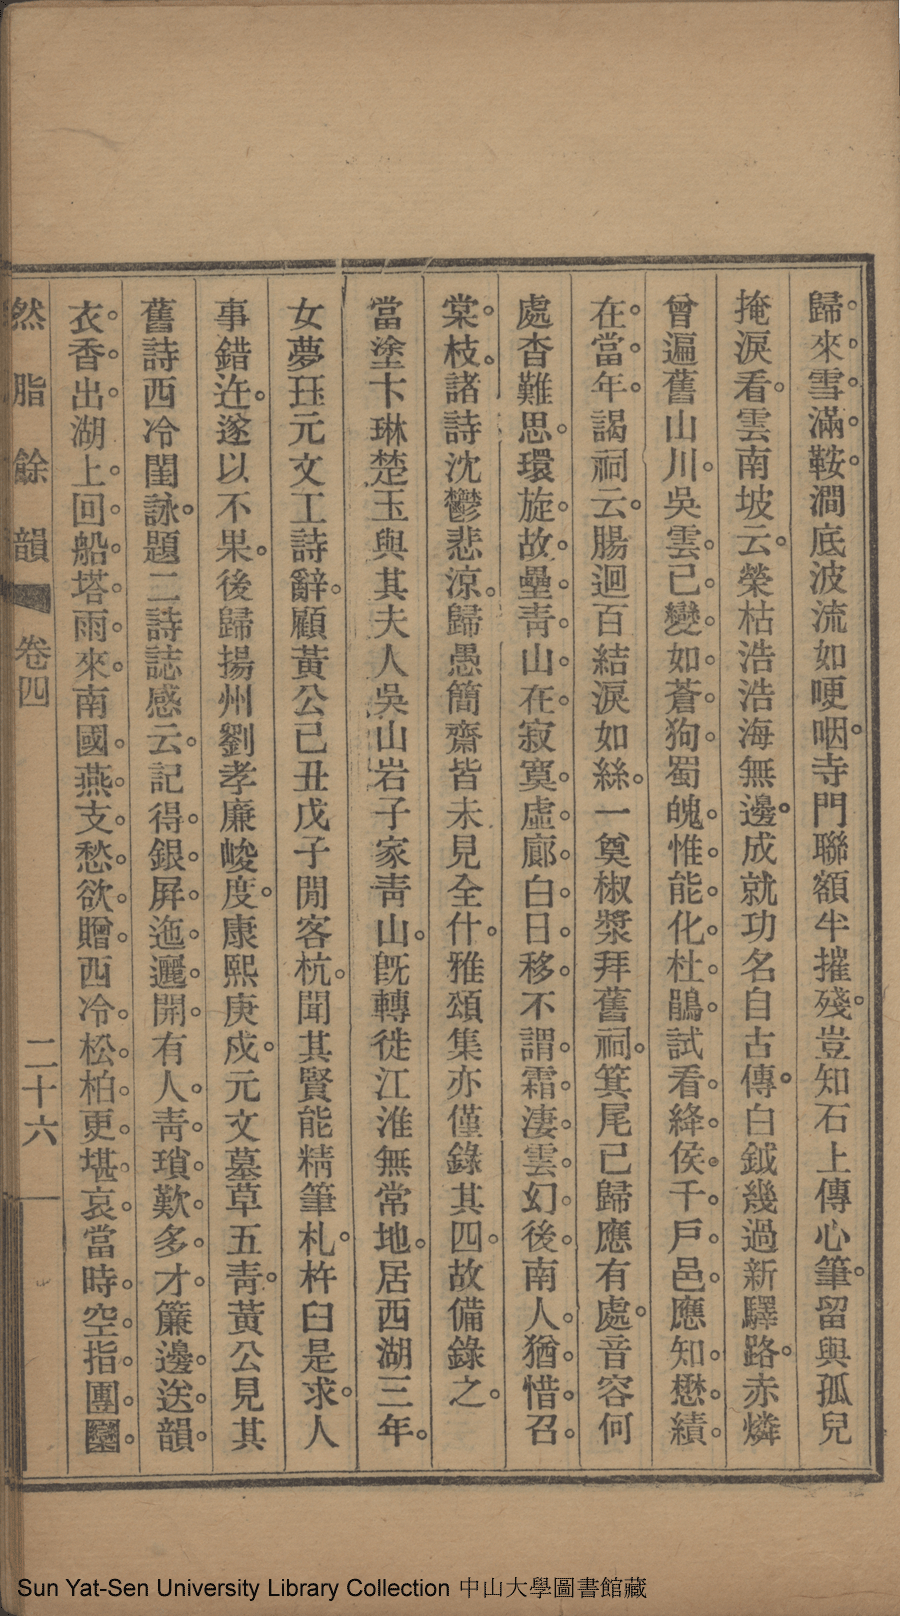 歸來雪滿鞍澗底波流如哽咽寺門聯額半摧殘豈知石上傳心筆留與孤兒
掩淚看雲南坡云榮枯浩浩海無邊成就功名自古傳白鉞幾過新驛路赤燐
曾遍舊山川吳雲已變如蒼狗蜀魄惟能化杜鵑試看絳侯千戶邑應知懋績
在當年謁祠云腸迴百結淚如絲一奠椒漿拜舊祠箕尾已歸應有處音容何
處杳難思環旋故壘青山在寂寞虛廊白日移不謂霜淒雲幻後南人猶惜召
棠枝諸詩沈鬱悲涼歸愚簡齋皆未見全什雅頌集亦僅錄其四故備錄之
當塗卞琳楚玉與其夫人吳山岩子家靑山旣轉徙江淮無常地居西湖三年
女夢珏元文工詩辭顧黃公己丑戊子閒客杭聞其賢能精筆札杵臼是求人
事錯迕遂以不果後歸揚州劉孝廉峻度康熙庚戍元文墓草五靑黃公見其
舊詩西泠閨詠題二詩誌感云記得銀屏迤邐開有人靑瑣歎多才簾邊送韻
衣香出湖上回船塔雨來南國燕支愁欲贈西泠松柏更堪哀當時空指團圞
然脂餘韻 卷四 二十六
Sun Yat-Sen University Library Collection 中山大學圖書館藏